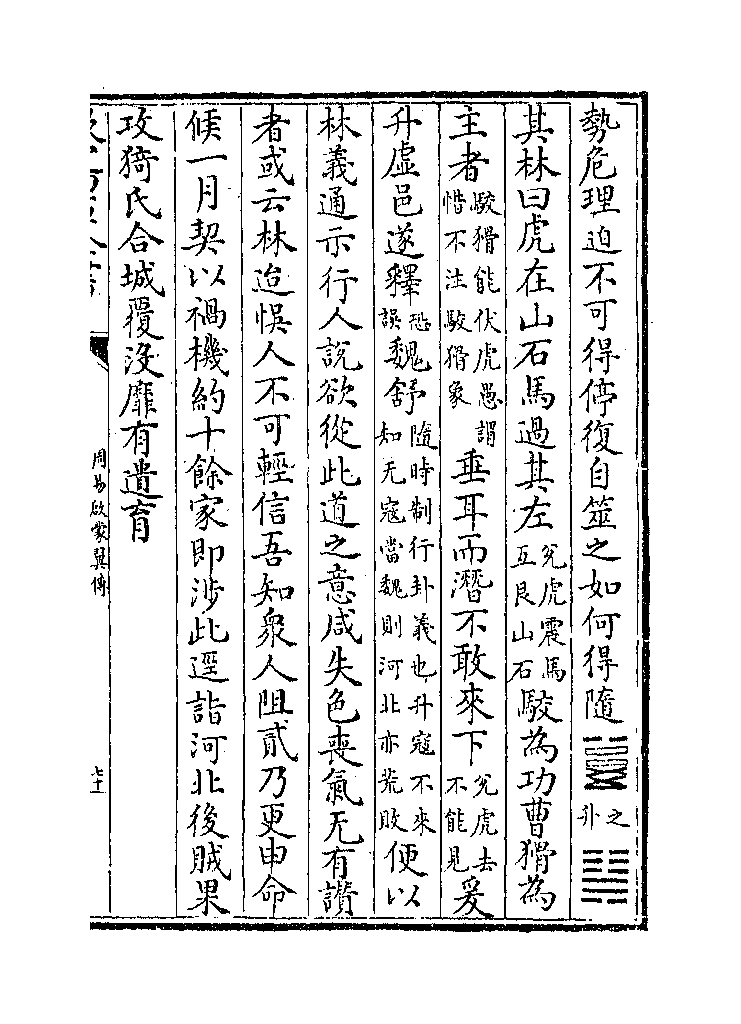 勢危理迫不可得停復自筮之如何得隨䷐之升䷭
其林曰虎在山石馬過其左兊虎震馬互艮山石駮為功曹猾為
主者駮猾能伏虎愚謂惜不注駮猾象垂耳而潛不敢來下兊虎去不能見爰
升虛邑遂釋恐誤魏舒隨時制行卦義也升寇不來知无寇當魏則河北亦荒敗便以
林義通示行人說欲從此道之意咸失色喪氣无有讚
者或云林迨悞人不可輕信吾知衆人阻貳乃更申命
候一月契以禍機約十餘家即涉此逕詣河北後賊果
攻猗氏合城覆没靡有遺育
周易啟蒙翼傳
七十一